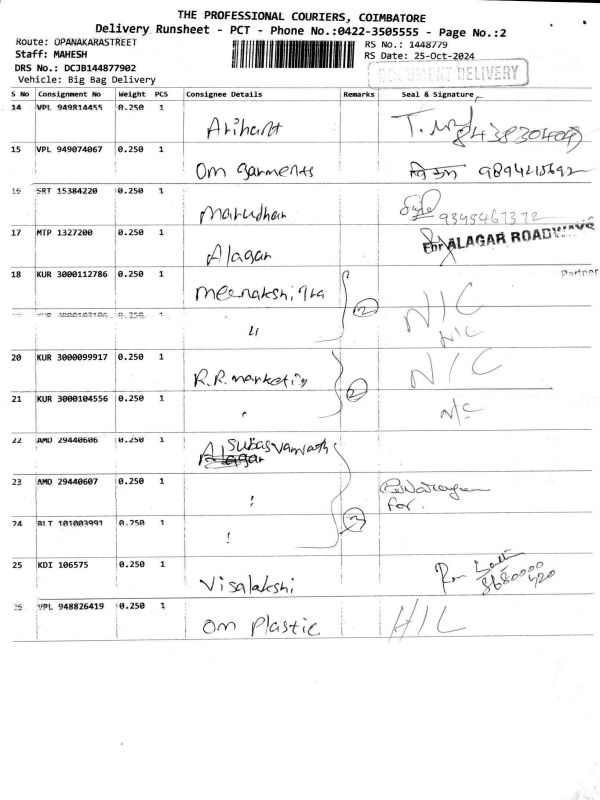 THE PROFESSIONAL COURIERS, COIMBATORE
Delivery Runsheet - PCT - Phone No.:0422-3505555 - Page No.:2
Route: OPANAKARASTREET
RS No.: 1448779
Staff: MAHESH
RS Date: 25-Oct-2024
DRS No.: DCJB144877902
DOCUMENT DELIVERY
Vehicle: Big Bag Delivery
S No Consignment No Weight PCS Consignee Details Remarks Seal & Signature
14 VPL 949814455 0.250 1 Arihant
15 VPL 949074067 0.250 1 Om garments 9894215692
16 SRT 15384220 0.250 1 Marudhar 9345467372
17 MTP 1327200 0.250 1 Alagar For ALAGAR ROADWAYS
Partner
18 KUR 3000112786 0.250 1 N/C
0.250 1 " 2 N/C
20 KUR 3000099917 0.250 1 R.R. marketing N/C
21 KUR 3000104556 0.250 1 " 2 N/C
22 AMD 29440606 0.250 1
23 AMD 29440607 0.250 1 "
for.
24 BLT 101003991 0.250 1 " 3
25 KDI 106575 0.250 1 Visalakshi
26 VPL 948826419 0.250 1 Om Plastic